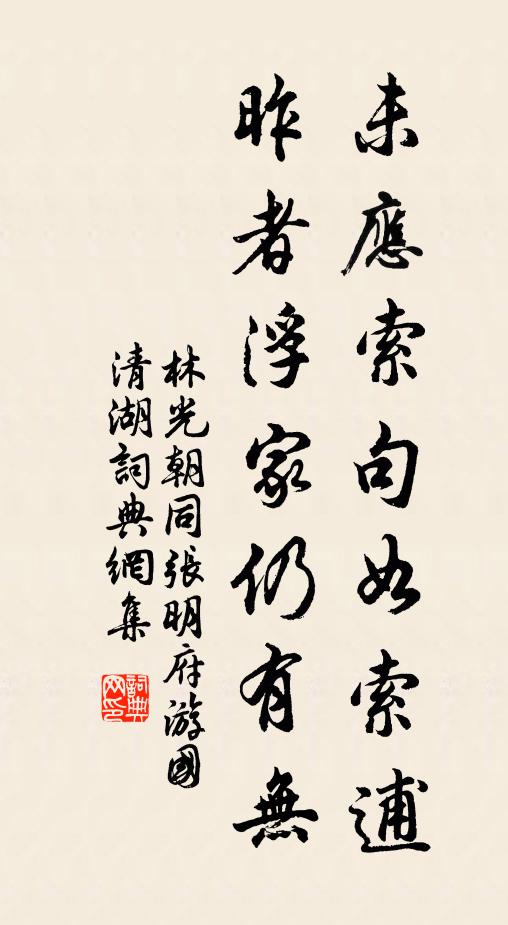 未應索句如索逋
昨者浮家仍有無
林光朝同張明府游國
清湖詞典網集
詞典网印